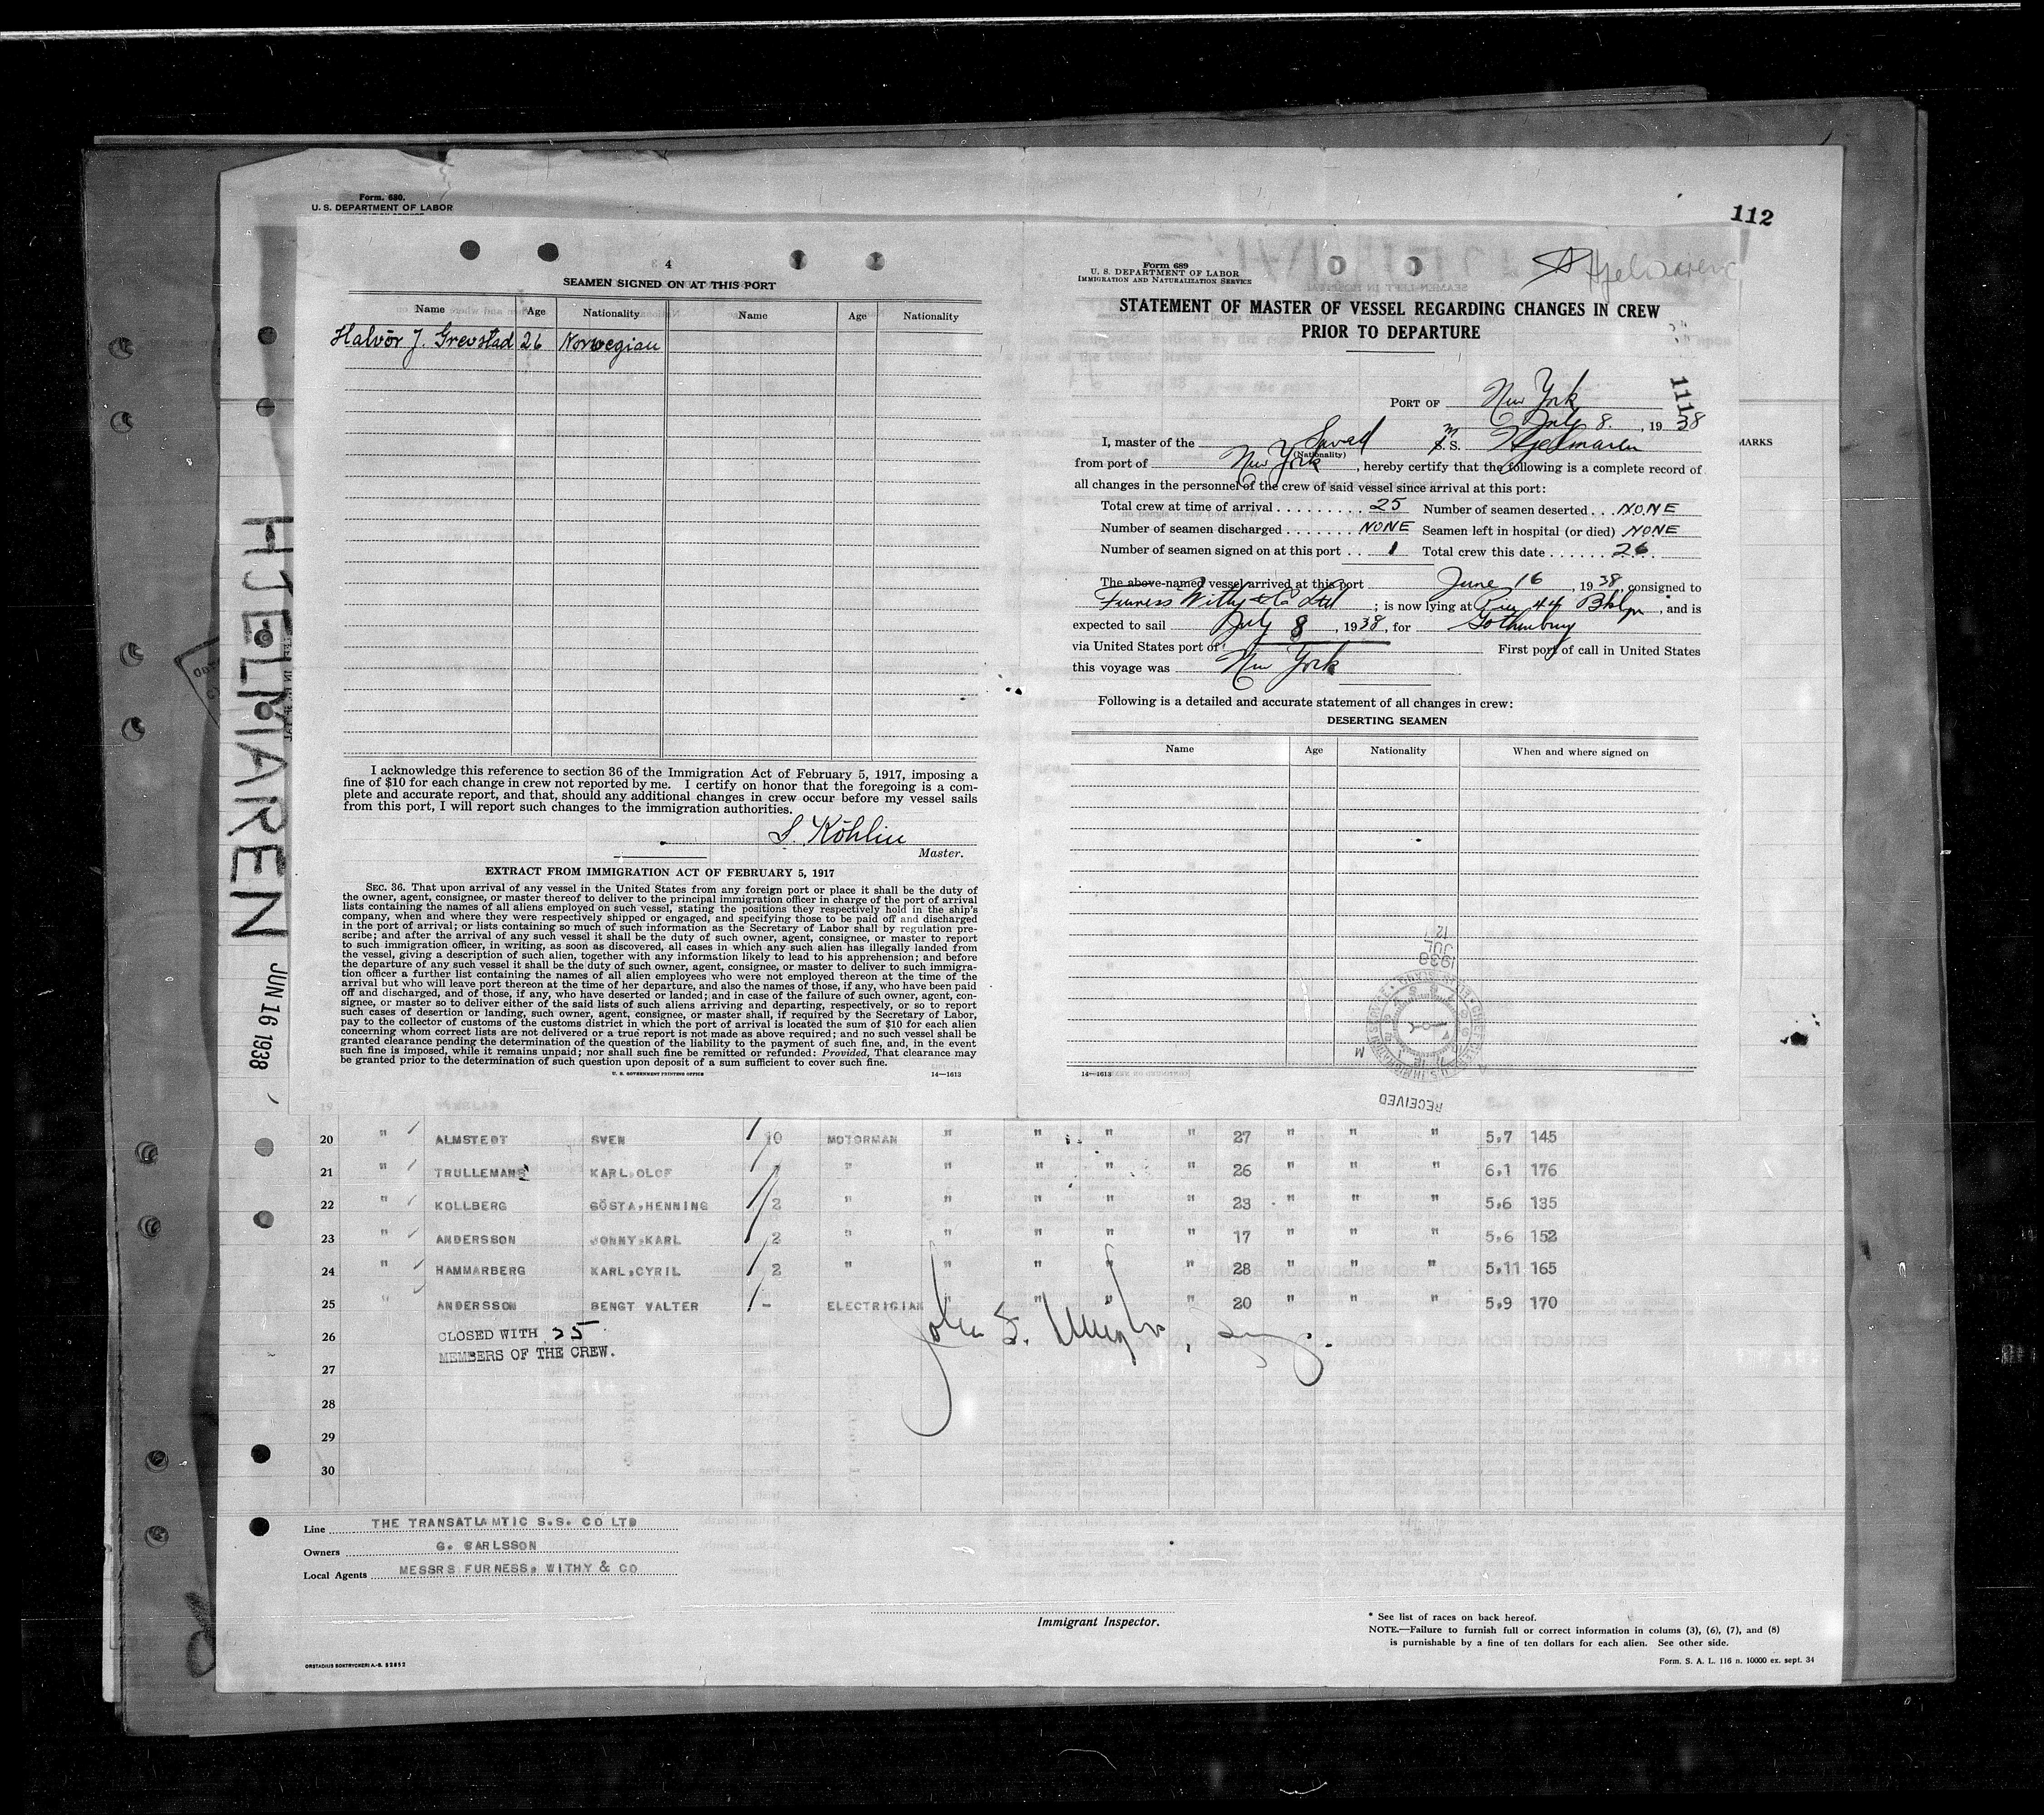 Form. 680.
U. S. DEPARTMENT OF LABOR
112
4
SEAMEN SIGNED ON AT THIS PORT
Name Age Nationality Name Age Nationality
Halvor J. Grevstad 26 Norwegian
I acknowledge this reference to section 36 of the Immigration Act of February 5, 1917, imposing a
fine of $10 for each change in crew not reported by me. I certify on honor that the foregoing is a com-
plete and accurate report, and that, should any additional changes in crew occur before my vessel sails
from this port, I will report such changes to the immigration authorities.
S. Köhlin
Master.
EXTRACT FROM IMMIGRATION ACT OF FEBRUARY 5, 1917
SEC. 36. That upon arrival of any vessel in the United States from any foreign port or place it shall be the duty of
the owner, agent, consignee, or master thereof to deliver to the principal immigration officer in charge of the port of arrival
lists containing the names of all aliens employed on such vessel, stating the positions they respectively hold in the ship's
company, when and where they were respectively shipped or engaged, and specifying those to be paid off and discharged
in the port of arrival; or lists containing so much of such information as the Secretary of Labor shall by regulation pre-
scribe; and after the arrival of any such vessel it shall be the duty of such owner, agent, consignee, or master to report
to such immigration officer, in writing, as soon as discovered, all cases in which any such alien has illegally landed from
the vessel, giving a description of such alien, together with any information likely to lead to his apprehension; and before
the departure of any such vessel it shall be the duty of such owner, agent, consignee, or master to deliver to such immigra-
tion officer a further list containing the names of all alien employees who were not employed thereon at the time of the
arrival but who will leave port thereon at the time of her departure, and also the names of those, if any, who have been paid
off and discharged, and of those, if any, who have deserted or landed; and in case of the failure of such owner, agent, con-
signee, or master so to deliver either of the said lists of such aliens arriving and departing, respectively, or so to report
such cases of desertion or landing, such owner, agent, consignee, or master shall, if required by the Secretary of Labor,
pay to the collector of customs of the customs district in which the port of arrival is located the sum of $10 for each alien
concerning whom correct lists are not delivered or a true report is not made as above required; and no such vessel shall be
granted clearance pending the determination of the question of the liability to the payment of such fine, and, in the event
such fine is imposed, while it remains unpaid; nor shall such fine be remitted or refunded: Provided, That clearance may
be granted prior to the determination of such question upon deposit of a sum sufficient to cover such fine.
U. S. GOVERNMENT PRINTING OFFICE 14—1613
Form 689
U. S. DEPARTMENT OF LABOR
IMMIGRATION AND NATURALIZATION SERVICE
Hjelmaren
STATEMENT OF MASTER OF VESSEL REGARDING CHANGES IN CREW
PRIOR TO DEPARTURE
1113
PORT OF New York
July 8. , 19 38
I, master of the Swed M S. Hjelmaren
(Nationality)
from port of New York , hereby certify that the following is a complete record of
all changes in the personnel of the crew of said vessel since arrival at this port:
Total crew at time of arrival . . . . . . . . . 25 Number of seamen deserted . . . NONE
Number of seamen discharged . . . . . . . NONE Seamen left in hospital (or died) NONE
Number of seamen signed on at this port . . 1 Total crew this date . . . . . . 26
The above-named vessel arrived at this port June 16 , 19 38, consigned to
Furness Withy & Co Ltd ; is now lying at Pier 44 Bklyn , and is
expected to sail July 8 , 19 38, for Gothenburg
via United States port of First port of call in United States
this voyage was New York
Following is a detailed and accurate statement of all changes in crew:
DESERTING SEAMEN
Name Age Nationality When and where signed on
14—1613
1938
JUL
12
RECEIVED
MARKS
HJELMAREN
JUN 16 1938
20 " ALMSTEDT SVEN 10 MOTORMAN " " " " 27 " " " 5.7 145
21 " TRULLEMANS KARL.OLOF " " " " " 26 " " " 6.1 176
22 " KOLLBERG GÖSTA,HENNING 2 " " " " " 23 " " " 5.6 135
23 " ANDERSSON JONNY.KARL 2 " " " " " 17 " " " 5.6 152
24 " HAMMARBERG KARL.CYRIL 2 " " " " " 28 " " " 5.11 165
25 " ANDERSSON BENGT VALTER - ELECTRICIAN " " " " 20 " " " 5.9 170
26 CLOSED WITH 25
MEMBERS OF THE CREW.
27
28
29
30
Line THE TRANSATLANTIC S.S. CO LTD
Owners G. CARLSSON
Local Agents MESSRS FURNESS, WITHY & CO
Immigrant Inspector.
* See list of races on back hereof.
NOTE.—Failure to furnish full or correct information in colums (3), (6), (7), and (8)
is purnishable by a fine of ten dollars for each alien. See other side.
ORSTADIUS BOKTRYCKERI A.-B. 52852
Form. S. A. L. 116 n. 10000 ex. sept. 34